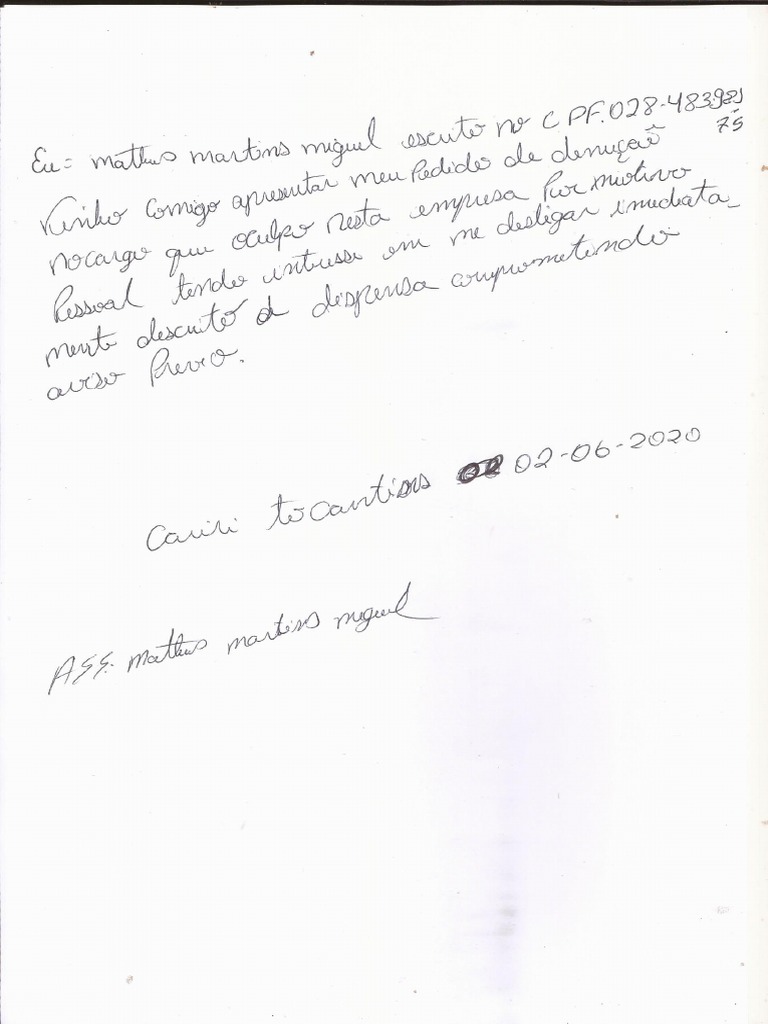 Eu = matheus martins miguel escrito no CPF.028-483.981
75
Venho comigo apresentar meu Pedido de demição
no cargo que oculpo nesta empresa Por motivo
Pessoal tendo intresse em me desligar imediata_
mente descrito d dispensa comprometendo
aviso Previo.
Cariri tocantins 02-06-2020
ASS: matheus martins miguel